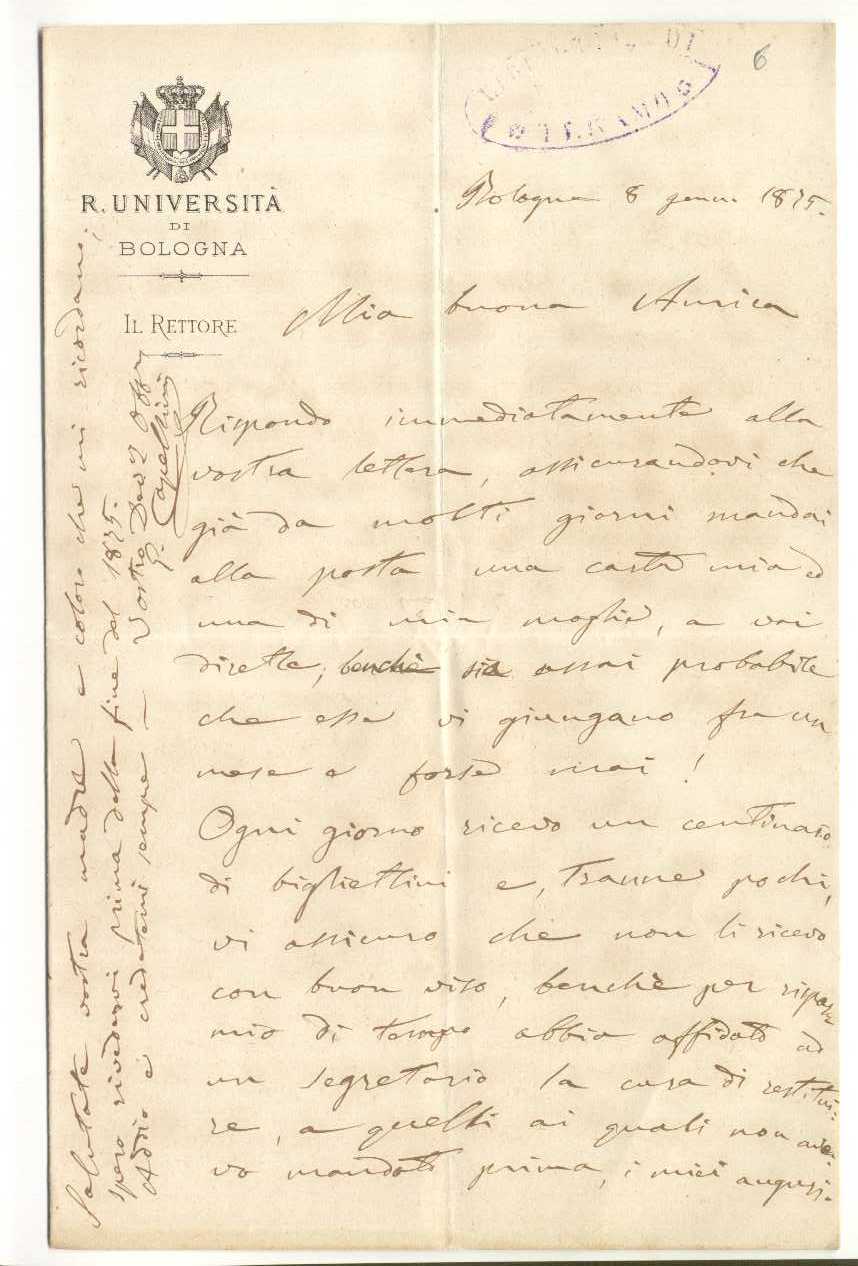 6
R. UNIVERSITÀ
DI
BOLOGNA
IL RETTORE
Bologna 8 genn. 1875.
Mia buona Amica
Rispondo immediatamente alla
vostra lettera, assicurandovi che
già da molti giorni mandai
alla posta una carta mia ed
una di mia moglie, a voi
dirette; benchè sia assai probabile
che esse vi giungano fra un
mese e forse mai!
Ogni giorno ricevo un centinajo
di bigliettini e, tranne pochi,
vi assicuro che non li ricevo
con buon viso, benchè per rispar
mio di tempo abbia affidato ad
un segretario la cura di restitui-
re, a quelli ai quali non ave-
vo mandato prima, i miei auguri.
Salutate vostra madre e coloro che mi ricordano;
spero rivedervi prima della fine del 1875.
Addio e credetemi sempre — Vostro Dev.
G. Capellini